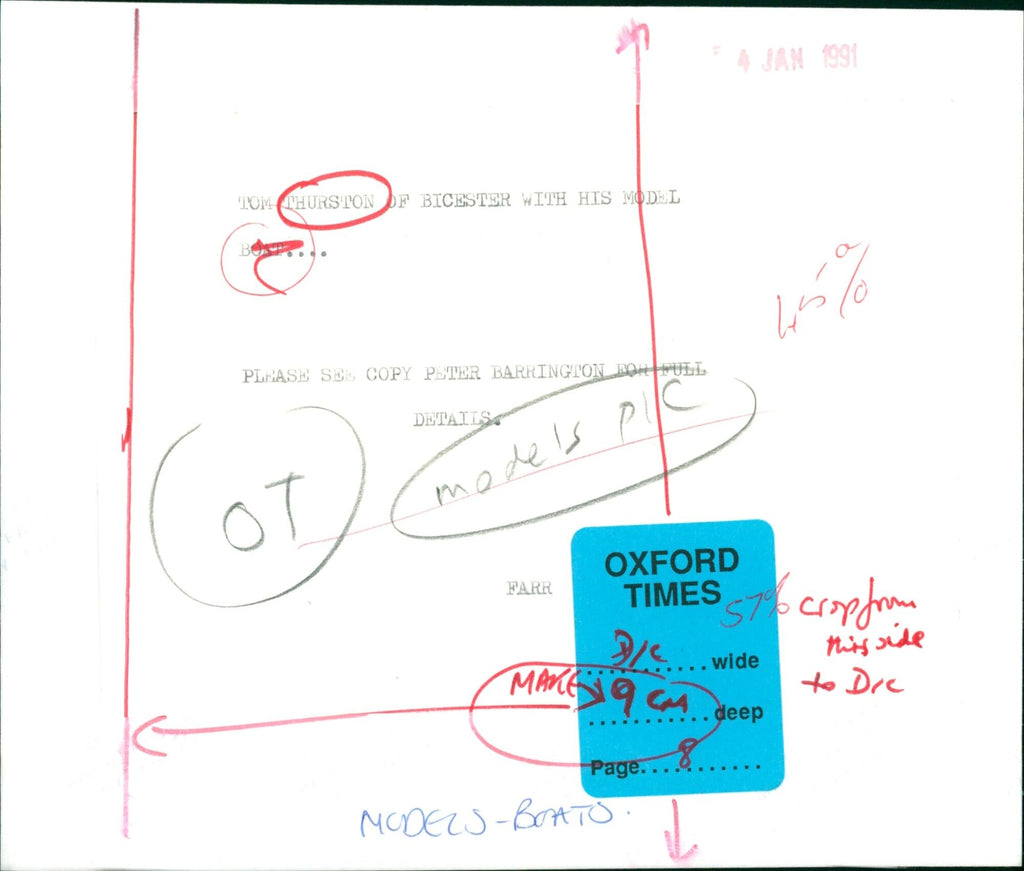 4 JAN 1991
TOM THURSTON OF BICESTER WITH HIS MODEL
BOAT....
45%
PLEASE SEE COPY PETER BARRINGTON FOR FULL
DETAILS.
models PIC
OT
FARR
OXFORD
TIMES
57% crop from
this side
to D/c
D/c wide
MAKE 9 CM deep
Page 8
MODELS-BOATS.